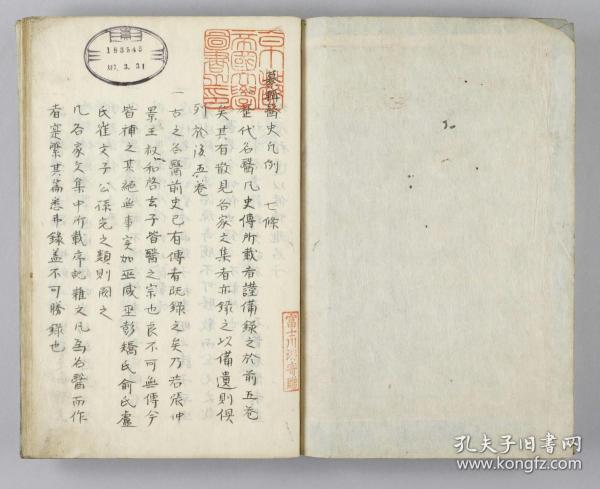 纂輯醫史凡例 七條
歷代名醫凡史傳所載者謹備錄之於前五卷
矣其有散見各家文集者亦錄之以備遺則俱
列於後五卷
一古之名醫前史已有傳者既錄之矣乃若張仲
景王叔和啓玄子皆醫之宗也良不可無傳今
皆補之某絕無事实如巫咸巫彭矯氏俞氏盧
氏崔文子公孫光之類則闕之
凡各家文集中所載序記雜文凡為名醫而作
者寔繁其篇悉弗錄盖不可勝錄也
京都
帝國大學
圖書之印
富士川游寄贈
193545
317.3.31
孔夫子旧书网
www.kongfz.com